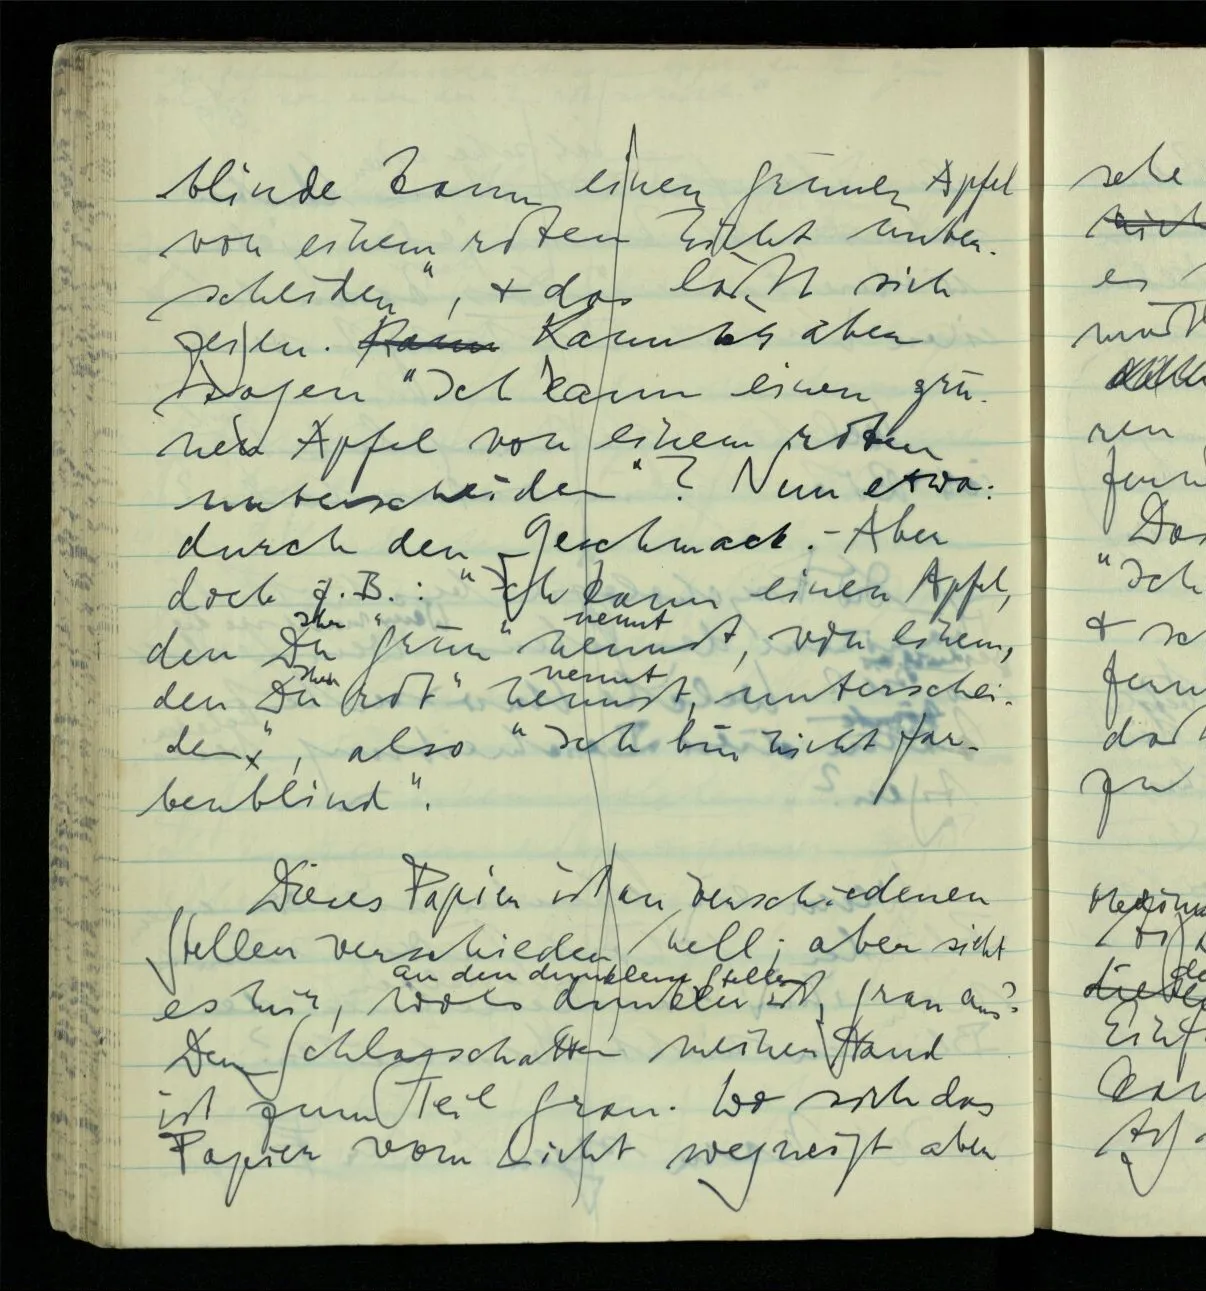 blinde kann einen grünen Apfel
von einem roten nicht unter-
scheiden“, + das läßt sich
zeigen. Kann Kann ich aber
sagen “Ich kann einen grü-
nen Apfel von einem roten
unterscheiden“? Nun etwa:
durch den Geschmack. – Aber
doch z.B.: “Ich kann einen Apfel,
Ihr nennt
den Du “grün“ nennst, von einem,
Ihr nennt
den Du “rot“ nennst, unterschei-
den“, also “Ich bin nicht far-
benblind“.
Dieses Papier ist an verschiedenen
Stellen verschieden hell; aber sieht
an den dunklern Stellen
es mir, wo es dunkler ist, grau aus?
Der Schlagschatten meiner Hand
ist zum Teil grau. Wo sich das
Papier vom Licht wegneigt aber
sehe
es
ren
Das
“Ich
+
zu